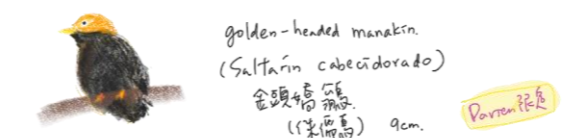 golden-headed manakin.
(Saltarín cabecidorado)
金頭嬌鶲.
(侏儒鳥) 9cm.
Darren